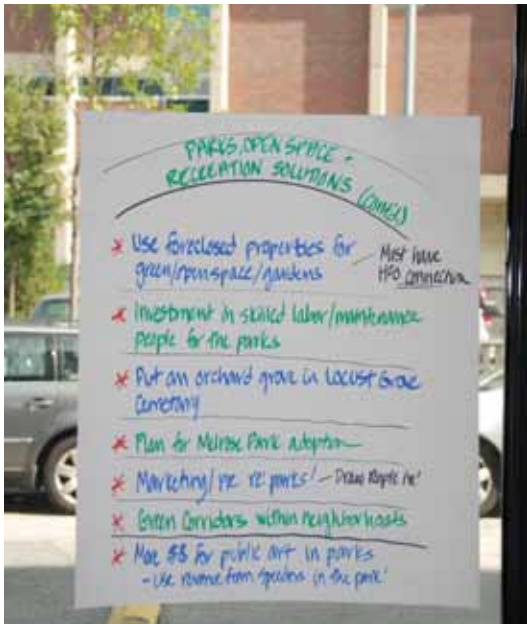 PARKS, OPEN SPACE +
RECREATION SOLUTIONS
* Use foreclosed properties for
green/open space/gardens
Must have
H2O connection
* Investment in skilled labor/maintenance
people for the parks
* Put an orchard grove in Locust Grove
Cemetary
* Plan for Melrose Park adoption
* Marketing/PR re: parks! - Draw People in!
* Green Corridors within neighborhoods
* More $$ for public art in parks
- use revenue from speeders in the park!